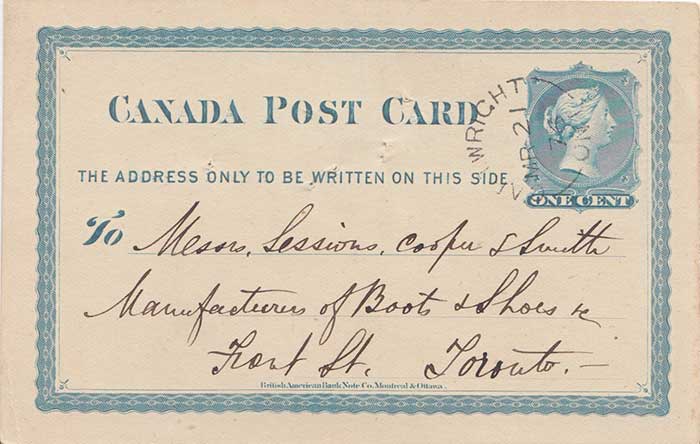 CANADA POST CARD
THE ADDRESS ONLY TO BE WRITTEN ON THIS SIDE
WRIGHT
MR 21
76
ON
ONE CENT
To Messrs. Sessions, Cooper & Smith
Manufacturers of Boots & Shoes &c
Front St. Toronto. —
British American Bank Note Co. Montreal & Ottawa.